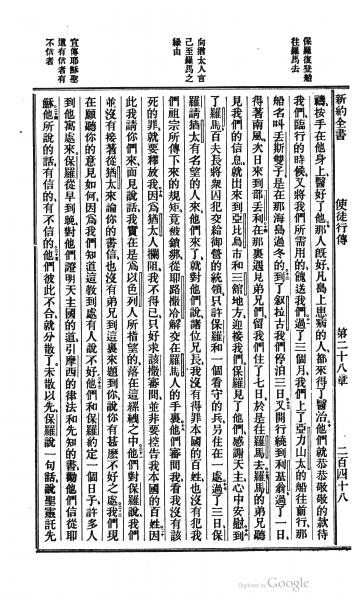 新約全書 使徒行傳 第二十八章 二百四十八
保羅復登船往羅馬去
向猶太人言己至羅馬之緣由
宣傳耶穌聖道有信者有不信者
禱按手在他身上醫好了他那人旣好凡島上患病的人都來得了醫治他們就恭恭敬敬的款待
我們臨行的時候又將我們所需用的餽送我們過了三個月我們上了亞力山太的船往前行那
船名叫丟斯雙子是在那海島過冬的到了叙拉古我們停泊三日又開行繞到利基翁過了一日
得著南風次日來到部丟利在那裏遇見弟兄們留我們住了七日於是往羅馬去羅馬的弟兄聽
見我們的信息就出來到亞比烏市和三館地方迎接我們保羅見了他們感謝天主心中安慰到
了羅馬百夫長將衆囚犯交給御營的統領只許保羅和一個看守的兵另住在一處過了三日保
羅請猶太有名望的人來他們來了就對他們說諸位兄長我沒有得罪本國的百姓也沒有犯我
們祖宗所傳下來的規矩竟被鎖綁從耶路撒冷解交在羅馬人的手裏他們審問我看我沒有該
死的罪就要釋放我因爲猶太人攔阻我不得已只好求該撒審問並非要控告我本國的百姓因
此我請你們來面見說話我實在是爲以色列人所指望的落在這縲絏之中他們對保羅說我們
並沒有接著從猶太來論你的書信也沒有弟兄到這裏來題到你說你有甚麽不好之處我們現
在願聽你的意見如何因爲我們知道這教到處有人說不好他們和保羅約定一個日子許多人
到他寓處來保羅從早到晚對他們證明天主國的道引摩西的律法和先知的書勸他們信從耶
穌他所說的話有信的有不信的他們彼此不合就分散了未散以先保羅說一句話說聖靈託先
Digitized by Google